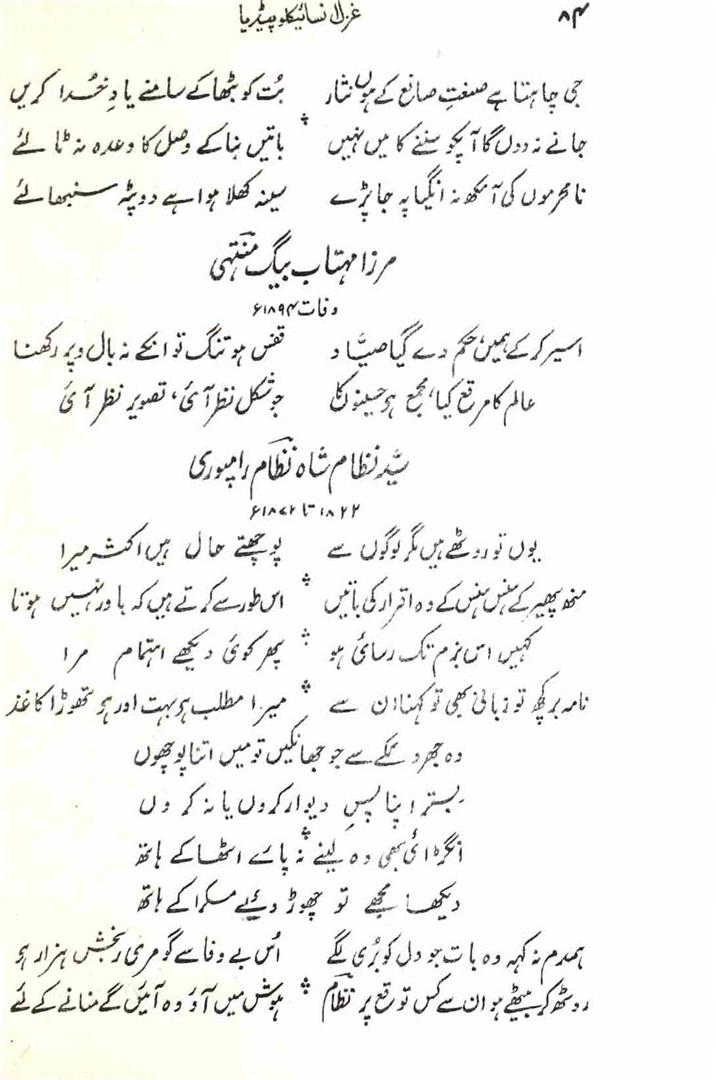 ۸۴ غزل انسائیکلوپیڈیا
جی چاہتا ہے صنعتِ صانع کے ہوں نثار بُت کو بٹھا کے سامنے یادِ خُدا کریں
جانے نہ دوں گا آپکو سننے کا میں نہیں باتیں بنا کے وصل کا وعدہ نہ ٹالئے
نامحرموں کی آنکھ نہ انگیا پہ جا پڑے سینہ کھلا ہوا ہے دوپٹہ سنبھالئے
مرزا مہتاب بیگ منتہی
وفات ۱۸۹۴ء
اسیر کر کے ہمیں حکم دے گیا صیّاد قفس ہو تنگ تو انکے نہ بال و پر رکھنا
عالم کا مرقع کیا، مجمع ہے حسینوں کا جو شکل نظر آئی، تصویر نظر آئی
سیّد نظام شاہ نظام رامپوری
۱۸۲۲ تا ۱۸۷۲ء
یوں تو روٹھے ہیں مگر لوگوں سے پوچھتے حال ہیں اکثر میرا
منھ پھیر کے ہنس ہنس کے وہ اقرار کی باتیں اس طور سے کرتے ہیں کہ باور نہیں ہوتا
کہیں اس بزم تک رسائی ہو پھر کوئی دیکھے اہتمام مرا
نامہ بر کچھ تو زبانی بھی تو کہنا ان سے میرا مطلب ہے بہت اور ہے تھوڑا کاغذ
وہ جھروکے سے جو جھانکیں تو میں اتنا پوچھوں
بستر اپنا پسِ دیوار کروں یا نہ کروں
انگڑائی بھی وہ لینے نہ پائے اٹھا کے ہاتھ
دیکھا مجھے تو چھوڑ دئیے مسکرا کے ہاتھ
ہمدم نہ کہہ وہ بات جو دل کو بُری لگے اُس بے وفا سے گو مری رنجش ہزار ہو
روٹھ کر بیٹھے ہو ان سے کس توقع پر نظام ہوش میں آؤ وہ آئیں گے منانے کے لئے